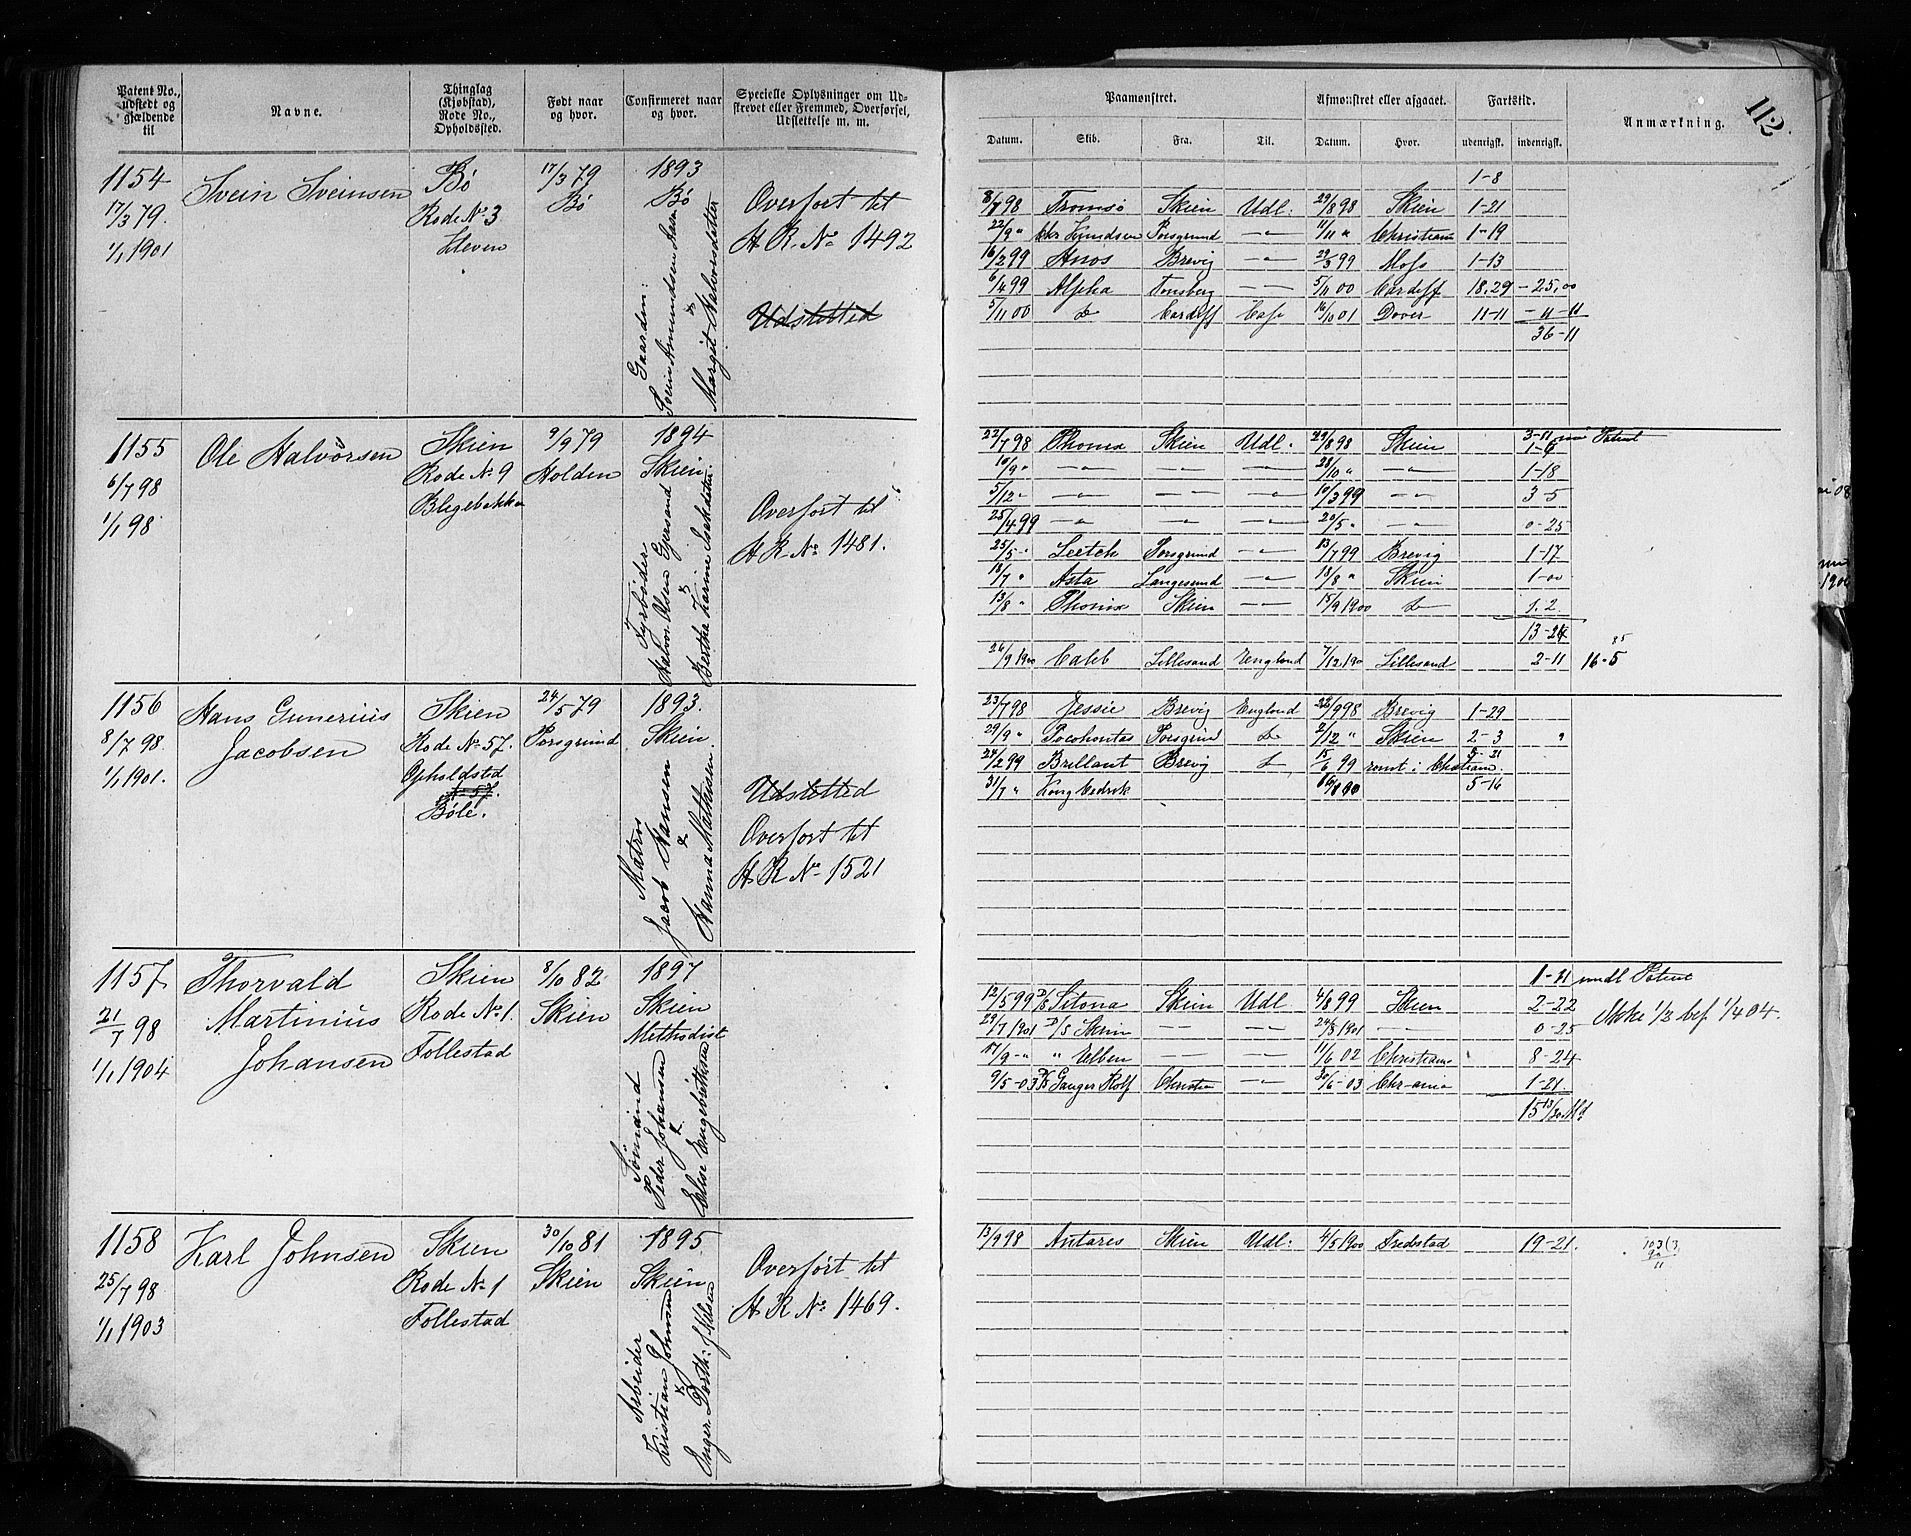 112.
Patent No., udstedt og gjældende til
Navne.
Thinglag (Kjøbstad), Rode No., Opholdssted.
Født naar og hvor.
Confirmeret naar og hvor.
Specielle Oplysninger om Udskrevet eller Fremmed, Overførsel, Udslettelse m. m.
Paamønstret.
Afmønstret eller afgaaet.
Fartstid.
Anmærkning.
Datum. Skib. Fra. Til. Datum. Hvor. udenrigsk. indenrigsk.
1154
17/3 79.
1/1 1901
Svein Sveinsen
Bø
Rode No 3
17/3 79
Bø
1893
Bø
Gaardm:
Margit Halvorsdatter
Overført til
H R No 1492
Udsletted
1-8
98 Tromsø Skien Udl: 29/8 98 Skien 1-21
22/9 " Chr Knudsen Porsgrund — 11/11 " Christiania 1-19
16/2 99 Brevig — 29/3 99 Moss 1-13
6/4 99 Alpha Tønsberg — 5/11 00 Cardiff 18.29 - 25,00
5/11 00 Do Cardiff 16/10 01 Dover 11-11 - 11-11
36-11
1155
6/7 98
1/1 98
Ole Halvorsen
Skien
Rode No 9
Blegebakken
9/9 79
Holden
1894
Skien
Halvor Olsen Gjesund
&
Overført til
H R No 1481.
22/7 98 Skien Udl: 29/8 98 Skien 3-11 Patent
1-6
10/9 " — — — 28/10 " — 1-18
5/12 — — — 10/3 99 — 3-5
25/4 99 — — — 20/5 " — 0-25
25/5 Porsgrund — 13/7 99 Brevig 1-17
18/7 " Asta Langesund — 13/8 " Skien 1-00
13/8 " Skien — 15/9 1900 Do 1.2
13-24
26/9 1900 Lillesand England 7/12 1900 Lillesand 2-11 16-5
1156
8/7 98.
1/1 1901.
Hans Gunerius
Jacobsen
Skien
Rode No 57.
Opholdsted
No 57.
Bøle.
24/5 79
Porsgrund
1893.
Skien
Matros
Jacob Hansen
&
Hanna Mathisen
Udslettet
Overført til
H R No 1521
23/7 98 Jessie Brevig England 22/9 98 Brevig 1-29
29/9 " Pocohontas Porsgrund Do 2/12 " Skien 2-3
24/2 99 Brillant Brevig Do 15/6 99 rømt i Chatham.
31/7 " 5-16
1157
21/7 98
1/1 1904
Thorvald
Martinius
Johansen
Skien
Rode No 1.
Follestad
8/10 82
Skien
1897
Skien
Methodist
Sømand
Peder Johansen
&
Else Engebrethsen
1-21 undl Patent
12/5 99 D/S Sitona Skien Udl 4/8 99 Skien 2-22 Ikke 1/3 bef 1/4 04.
29/7 1901 D/S Skien — — 24/8 1901 — 0-25
17/9 - " " Elben — — 11/6 02 Christiania 8-24
9/5-03 D/S Ganger Rolf Christia — 30/6-03 Chr-ania 1-21
15 13/30 Md
1158
25/7 98
1/1 1903
Karl Johnsen
Skien
Rode No 1
Follestad
30/10 81
Skien
1895
Skien
Arbeider
Kristian Johnsen
&
Overført til
H R No 1469.
13/9 98 Antares Skien Udl: 4/5 1900 Fredstad 19-21.